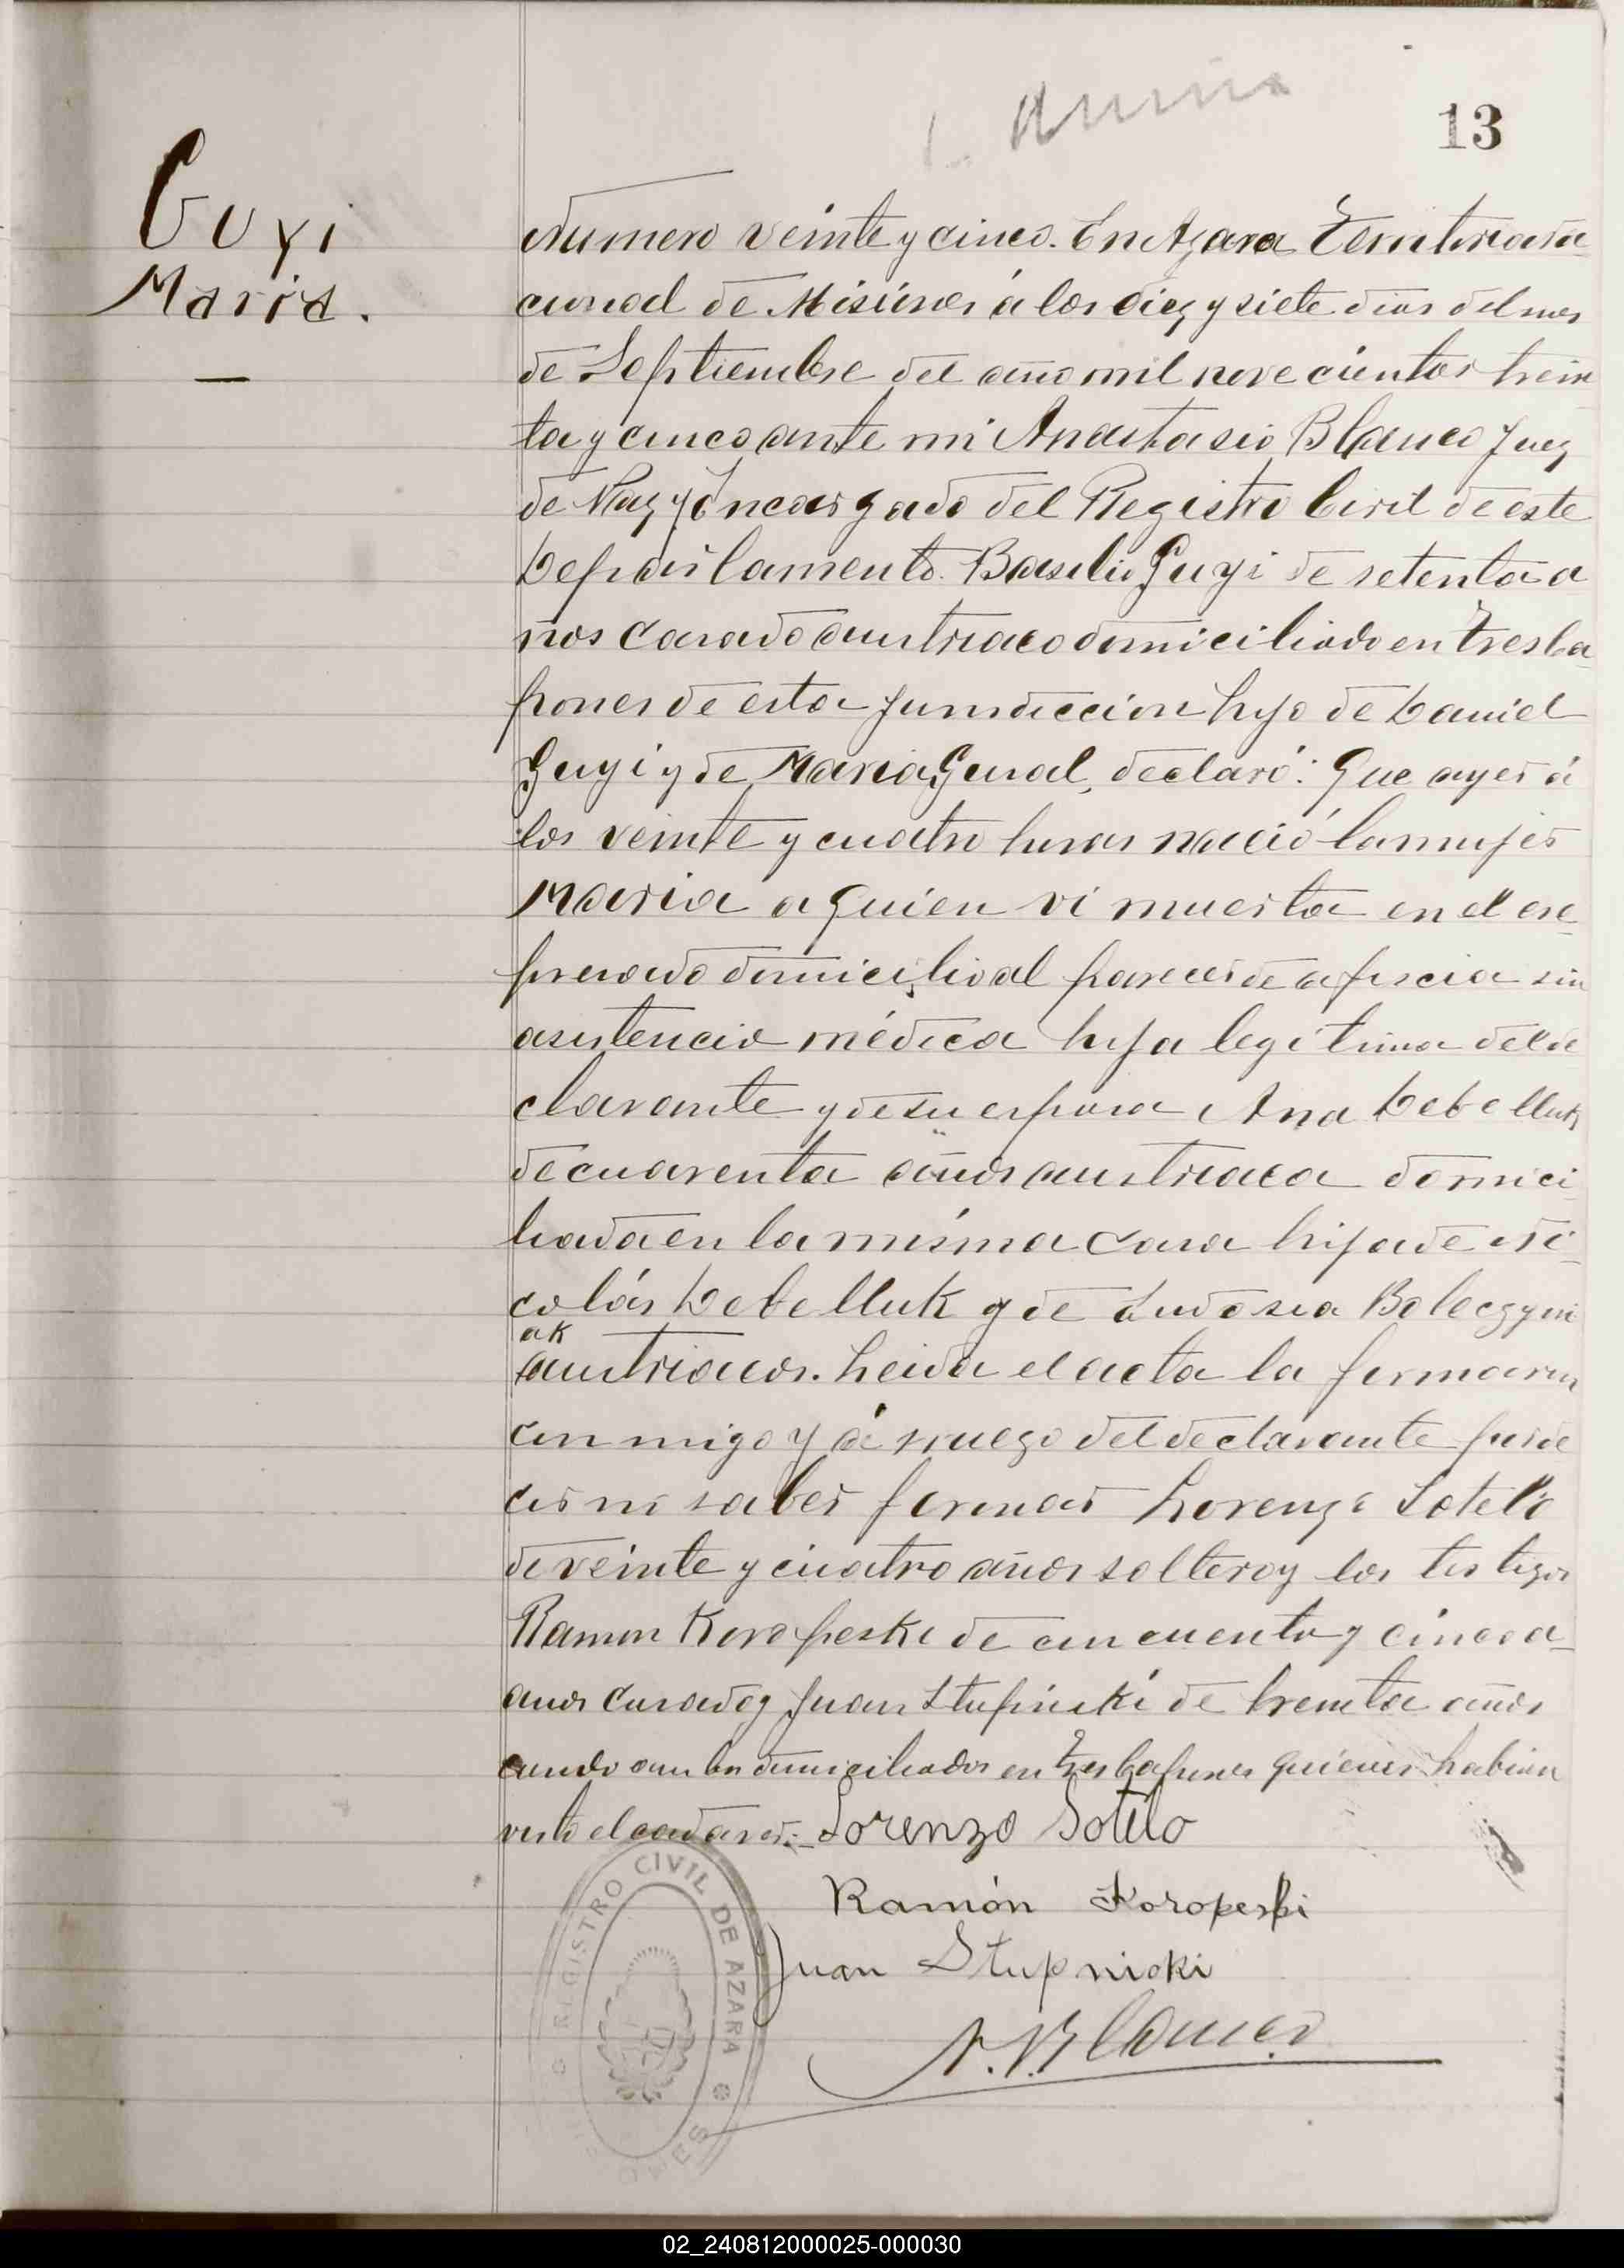 13
Guyi
Maria.
Numero veinte y cinco. En Azara Territorio na-
cional de Misiones á los diez y siete dias del mes
de Septiembre del año mil nove cientos trein
ta y cinco ante mi Anastasio Blanco Juez
de Paz y Encargado del Registro Civil de este
Departamento. Basilio Guyi de setenta a
ños casado austriaco domiciliado en Tres Ca-
pones de esta jurisdiccion hijo de Daniel
Guyi y de Maria Gural, declaró: Que ayer á
los veinte y cuatro horas nació la mujer
Maria a quien vi muerta en el ex-
presado domicilio al parecer de afixcia sin
asistencia médica hija legitima del de
clarante y de su esposa Ana Debelluk
de cuarenta años austriaca domici-
liada en la misma casa hija de Ni-
colás Debelluk y de Eudosia Boleczyni
ak
austriacos. Leida el acta la firmaron
conmigo y á ruego del declarante por de
cir no saber firmar Lorenzo Sotelo
de veinte y cuatro años soltero y los testigos
Ramon Koropeski de cincuenta y cinco a-
años casado y Juan Stupinski de treinta años
casado ambos domiciliados en Tres Capones quienes habian
visto el cadaver.- Lorenzo Sotelo
Ramón Koropeski
Juan Stupnicki
A. Blanco
REGISTRO CIVIL DE AZARA
02_240812000025-000030